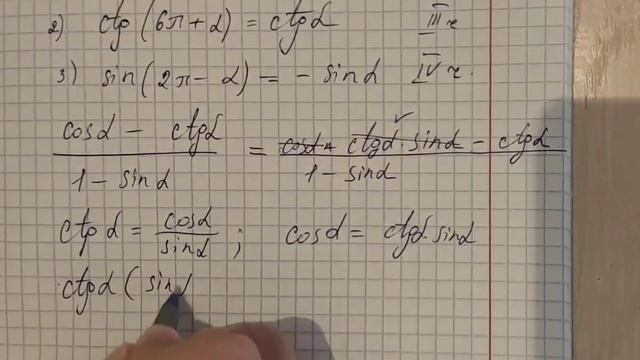 2) ctg (6π + α) = ctgα III г
3) sin (2π - α) = - sinα IV г.
cosα - ctgα / 1 - sinα = cosα + ctgα · sinα - ctgα / 1 - sinα
ctg α = cosα / sinα ; cosα = ctgα · sinα
ctgα ( sin